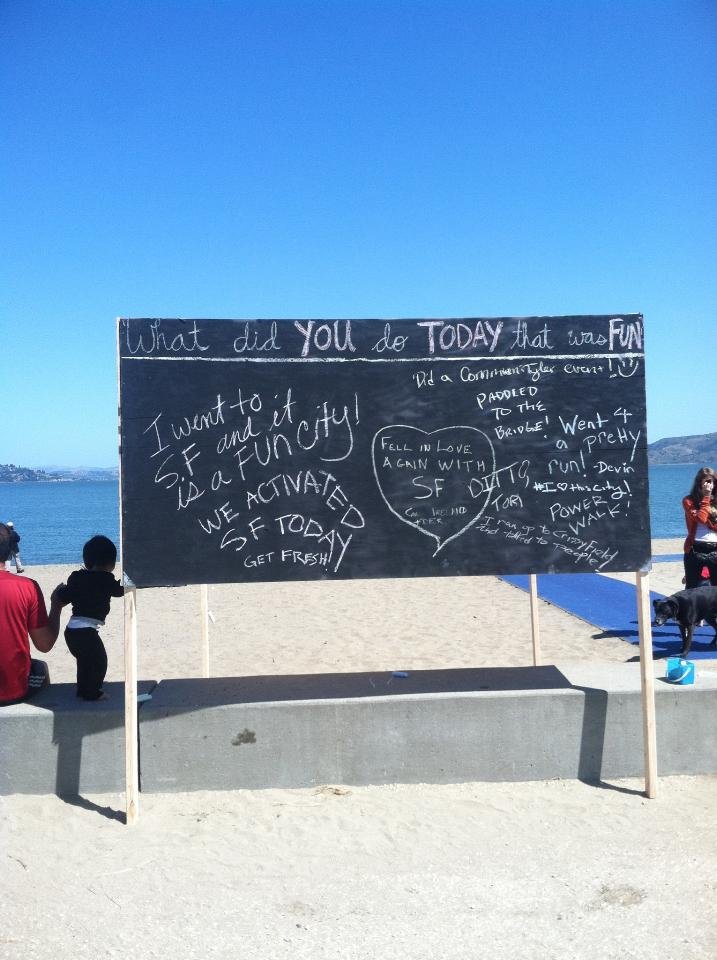 What did YOU do TODAY that was FUN
I went to
SF and it
is a FUN CITY!
WE ACTIVATED
SF TODAY
GET FRESH!
FELL IN LOVE
AGAIN WITH
SF
Did a Commun-Tyler event!
PADDLED
TO THE
BRIDGE!
DITTO,
TORI
Went 4
a pretty
run! -Devin
#I♡thisCity!
POWER
WALK!
I ran up to Crissy Field
and talked to people